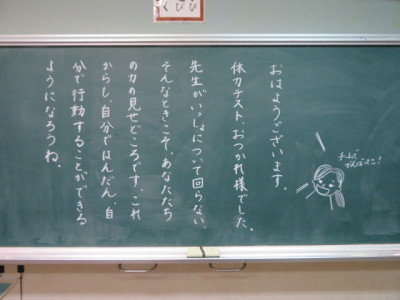 おはようございます。
体力テスト、おつかれ様でした。
先生がいっしょについて回らない、
そんなときこそ、あなたたち
の力の見せどころです。これ
からも、自分ではんだん、自
分で行動することができる
ようになろうね。
チームで